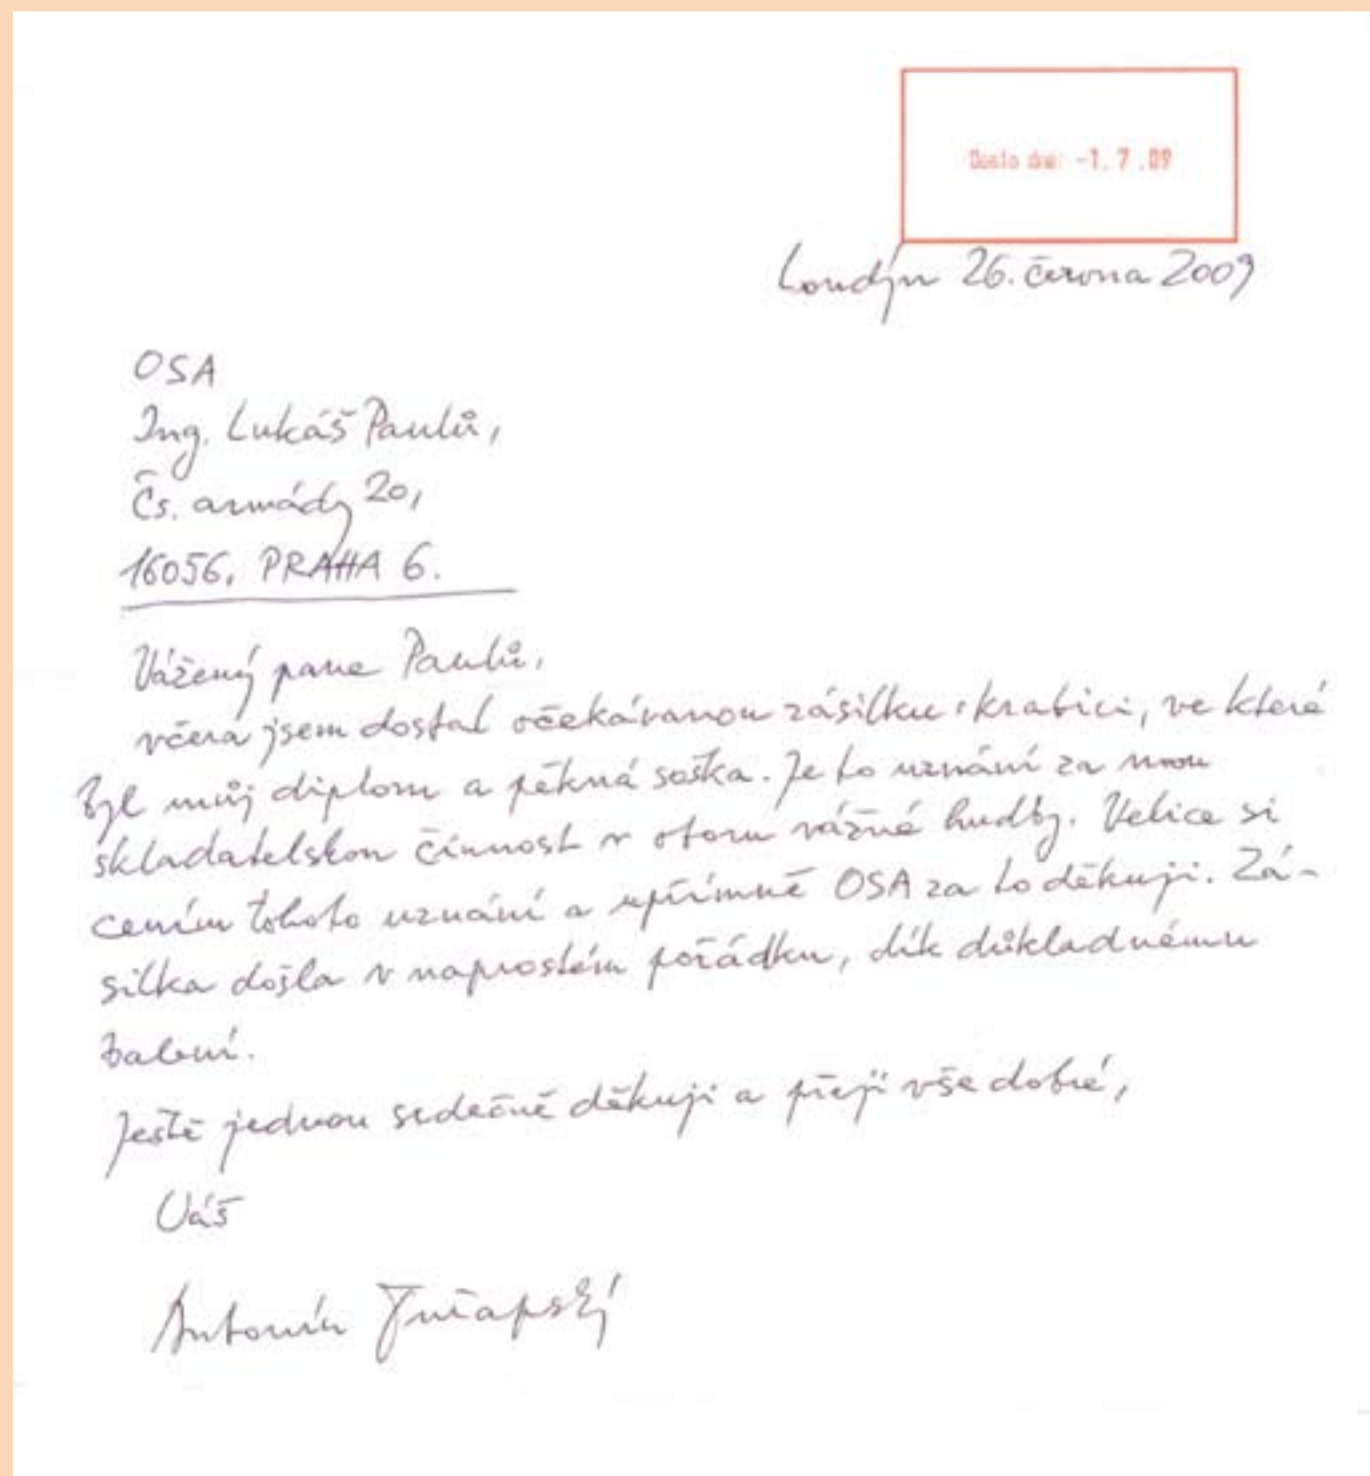 Došlo dne: -1. 7. 09
Londýn 26. června 2009
OSA
Ing. Lukáš Paulů,
Čs. armády 20,
16056, PRAHA 6.
Vážený pane Paulů,
včera jsem dostal očekávanou zásilku: krabici, ve které
byl můj diplom a pěkná soška. Je to uznání za mou
skladatelskou činnost v oboru vážné hudby. Velice si
cením tohoto uznání a upřímně OSA za to děkuji. Zá-
silka došla v naprostém pořádku, dík důkladnému
balení.
Ještě jednou srdečně děkuji a přeji vše dobré,
Váš
Antonín Tučapský